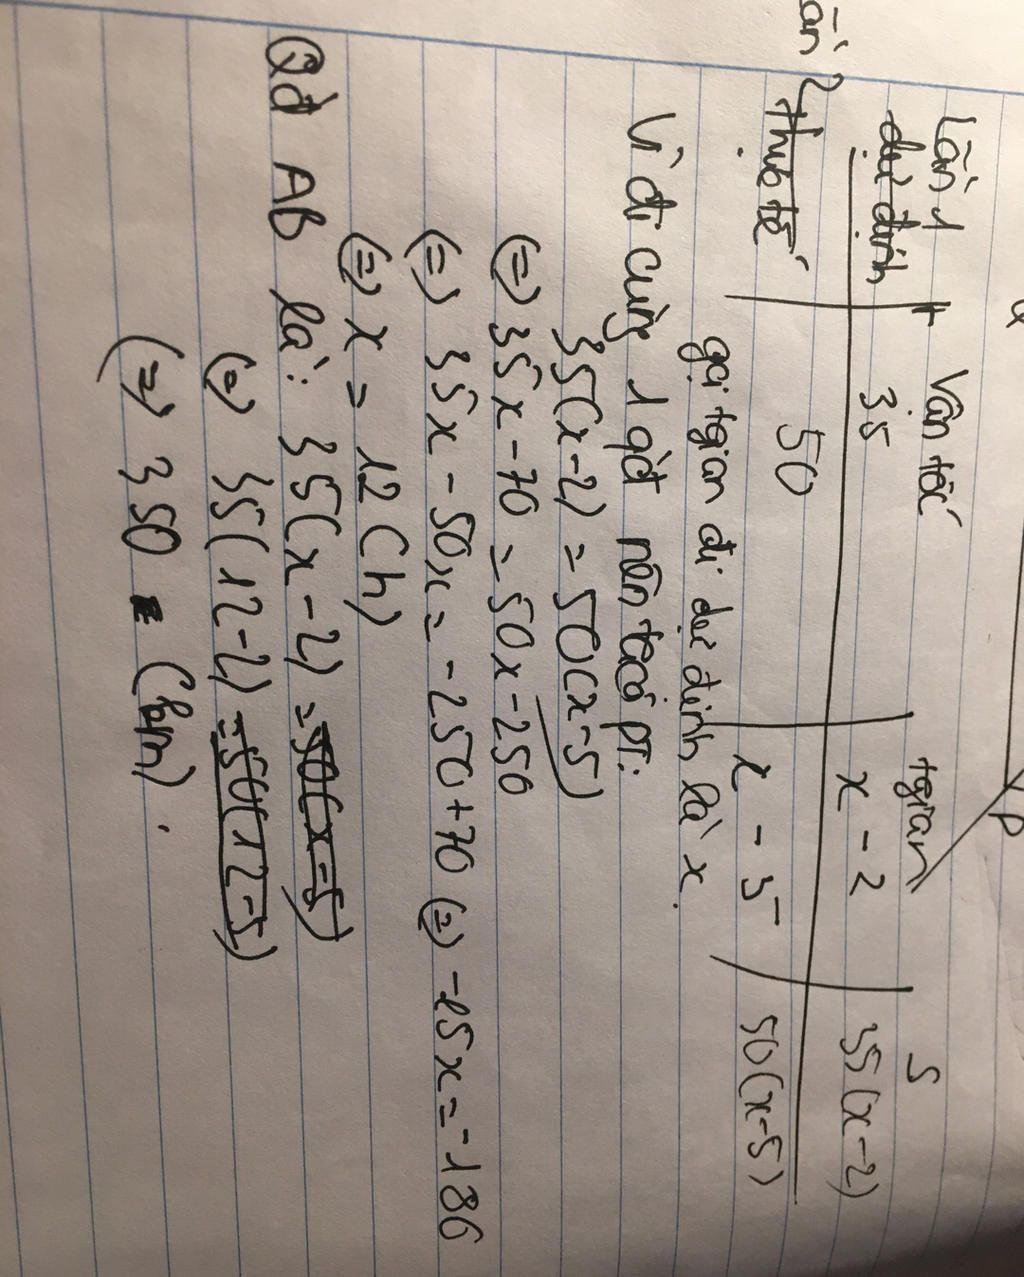 Vận tốc tgian S
Lần 1
dự định 35 x - 2 35(x-2)
Lần 2
thực tế 50 x - 5 50(x-5)
gọi tgian đi dự định là x.
Vì đi cùng 1 qđ nên ta có pt:
35(x-2) = 50(x-5)
(=) 35x-70 = 50x-250
(=) 35x - 50x = -250+70 (=) -15x = -180
(=) x = 12 (h)
Qđ AB là: 35(x-2) = 50(x-5)
(=) 35(12-2) = 50(12-5)
(=) 350 (km).
P